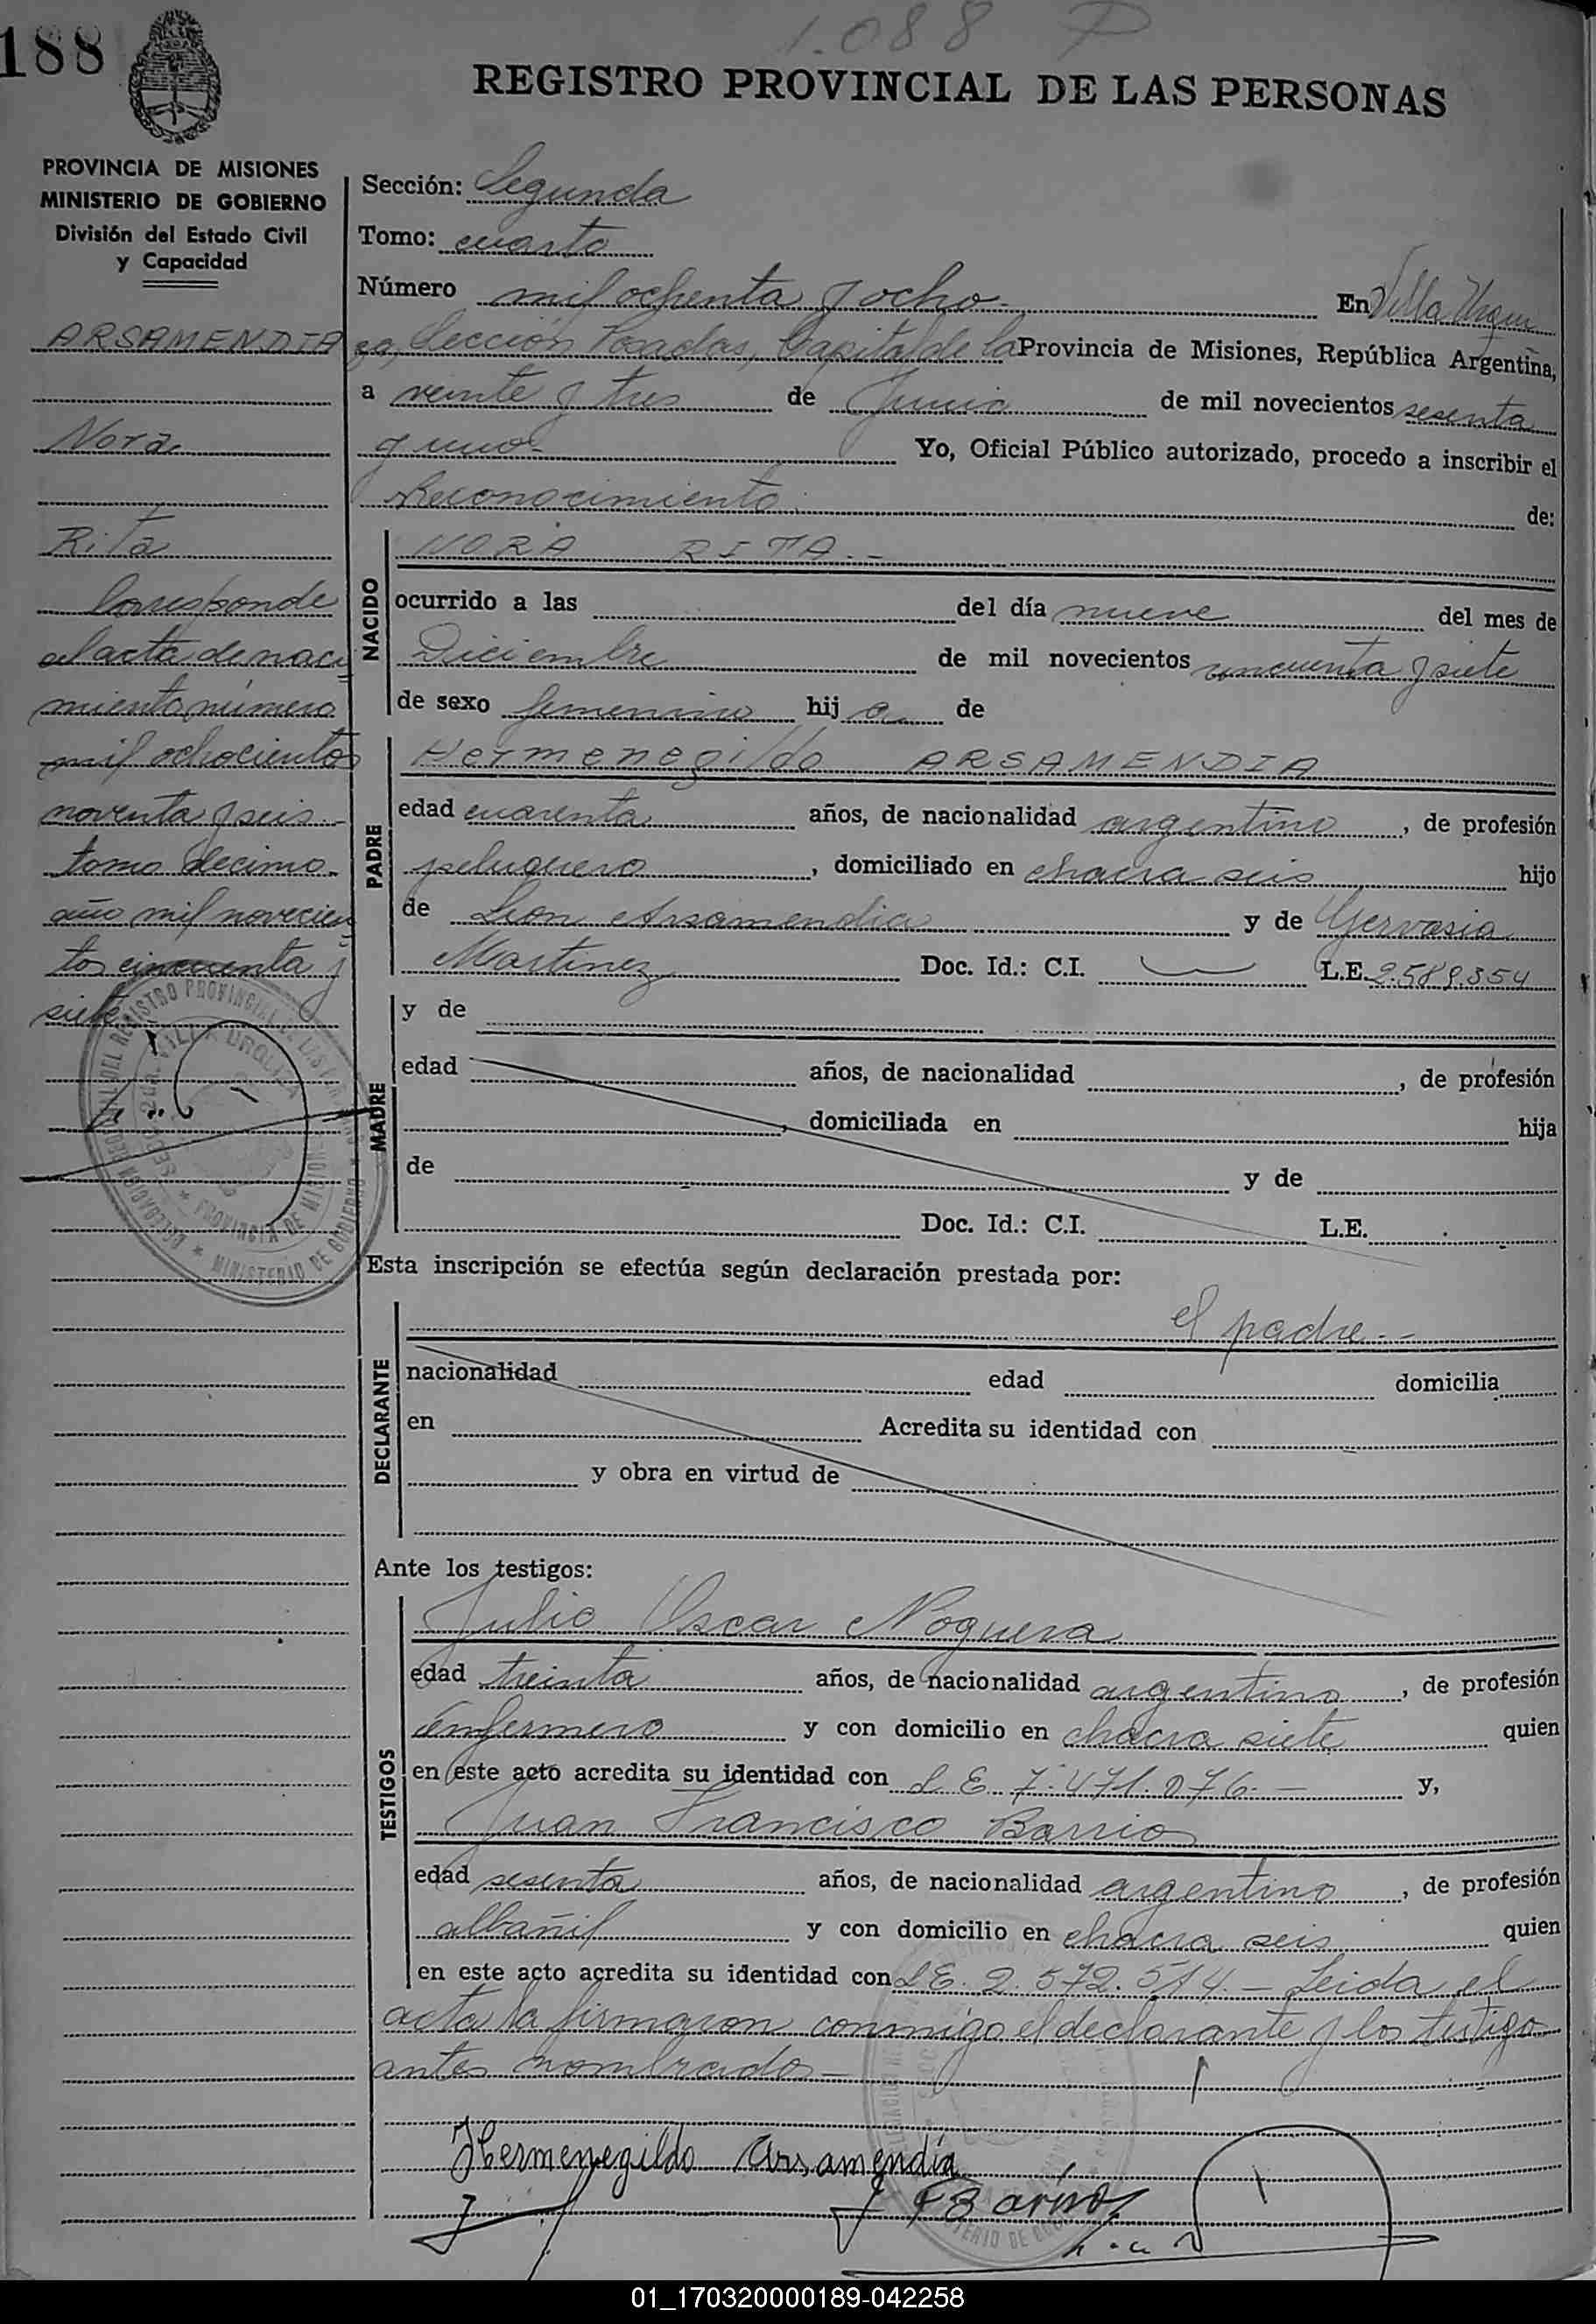 1.088 P
188
REGISTRO PROVINCIAL DE LAS PERSONAS
PROVINCIA DE MISIONES
MINISTERIO DE GOBIERNO
División del Estado Civil
y Capacidad
ARSAMENDIA
Nora
Rita
Corresponde
al acta de naci
miento número
mil ochocientos
noventa y seis.-
tomo decimo.
año mil novecien
tos cincuenta y
siete
Sección: Segunda
Tomo: cuarto
Número mil ochenta y ocho En Villa Urqui
za, Sección Posadas, Capital de la Provincia de Misiones, República Argentina,
a veinte y tres de Junio de mil novecientos sesenta
y uno.- Yo, Oficial Público autorizado, procedo a inscribir el
Reconocimiento de:
NACIDO
NORA RITA.-
ocurrido a las del día nueve del mes de
Diciembre de mil novecientos cincuenta y siete
de sexo femenino hij a de
PADRE
Hermenegildo ARSAMENDIA
edad cuarenta años, de nacionalidad argentino, de profesión
peluquero, domiciliado en chacra seis hijo
de Leon Arsamendia y de Gervasia
Martinez Doc. Id.: C.I. L.E. 2.589.354
MADRE
y de
edad años, de nacionalidad , de profesión
, domiciliada en hija
de y de
Doc. Id.: C.I. L.E.
Esta inscripción se efectúa según declaración prestada por:
DECLARANTE
el padre.-
nacionalidad edad domicilia
en Acredita su identidad con
y obra en virtud de
Ante los testigos:
TESTIGOS
Julio Oscar Noguera
edad treinta años, de nacionalidad argentino, de profesión
enfermero y con domicilio en chacra siete quien
en este acto acredita su identidad con L E 7.471.076.- y,
Juan Francisco Barrios
edad sesenta años, de nacionalidad argentino, de profesión
albañil y con domicilio en chacra seis quien
en este acto acredita su identidad con L E. 2.572.514.- Leida el
acta la firmaron conmigo el declarante y los testigo
antes nombrados.-
Hermenegildo Arsamendia
01_170320000189-042258